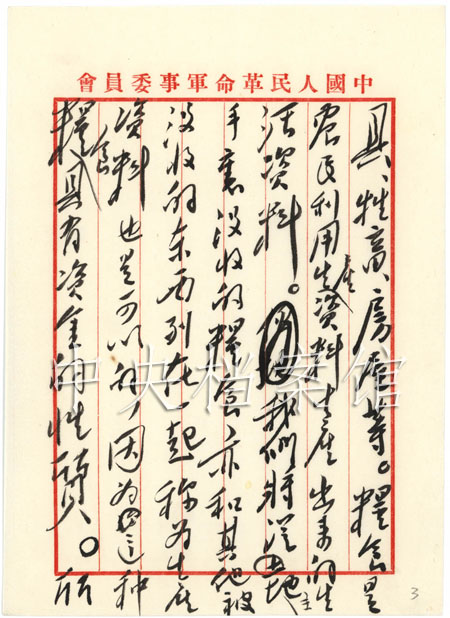 中國人民革命軍事委員會
具、牲畜、房屋等。糧食是
农民利用生產资料生產出来的生
活资料。我們將從地主
手裏没收的糧食，亦和其他被
没收的东西列在一起称为生產
资料也是可以的，因为这种
糧食具有资金的性質。所
中央档案馆
3